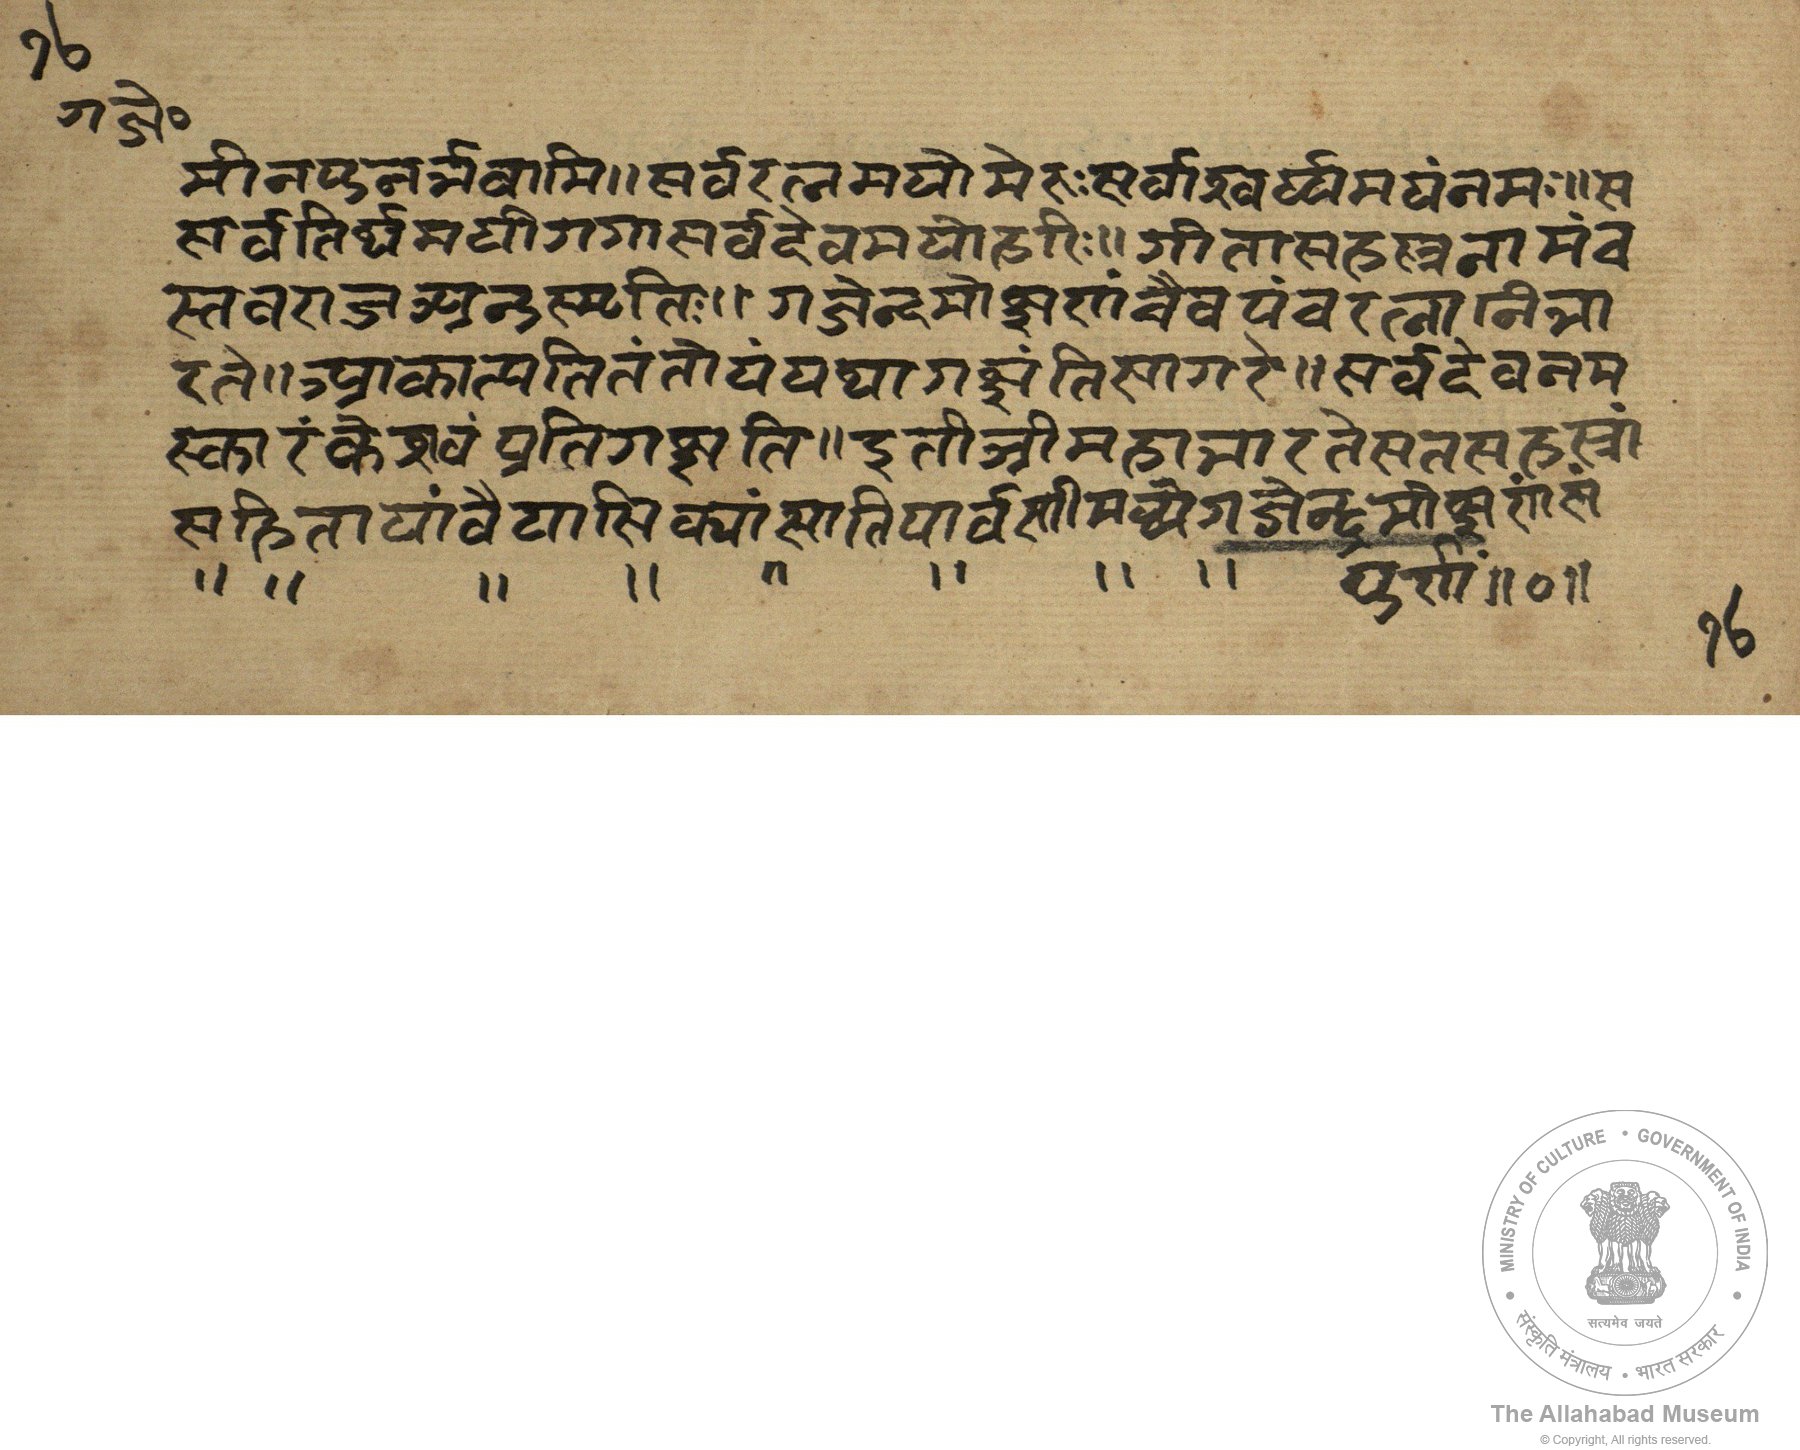 १७
गजे०
मी न पुनर्भवामि ॥ सर्वरत्नमयो मेरुः सर्वाश्वर्ष्यमयं नमः ॥ स
सर्वतिर्थमयी गगा सर्वदेवमयो हरिः ॥ गीता सहस्त्रनामं च
स्तवराज अनुस्मृतिः ॥ गजेन्द्रमोक्षणं चैव पंच रत्नानि भा
रते ॥ आकात्पतितं तोयं यथा गक्षंति सागरे ॥ सर्वदेवनम
स्कारं केशवं प्रति गक्षति ॥ इती श्रीमहाभारते सतसहस्त्रां
सहितायां वैयासिक्यां सातिपार्वणी मध्ये गजेन्द्रमोक्षणं सं
पुर्णं ॥०॥
१७
MINISTRY OF CULTURE • GOVERNMENT OF INDIA
सत्यमेव जयते
संस्कृति मंत्रालय • भारत सरकार
The Allahabad Museum
© Copyright, All rights reserved.